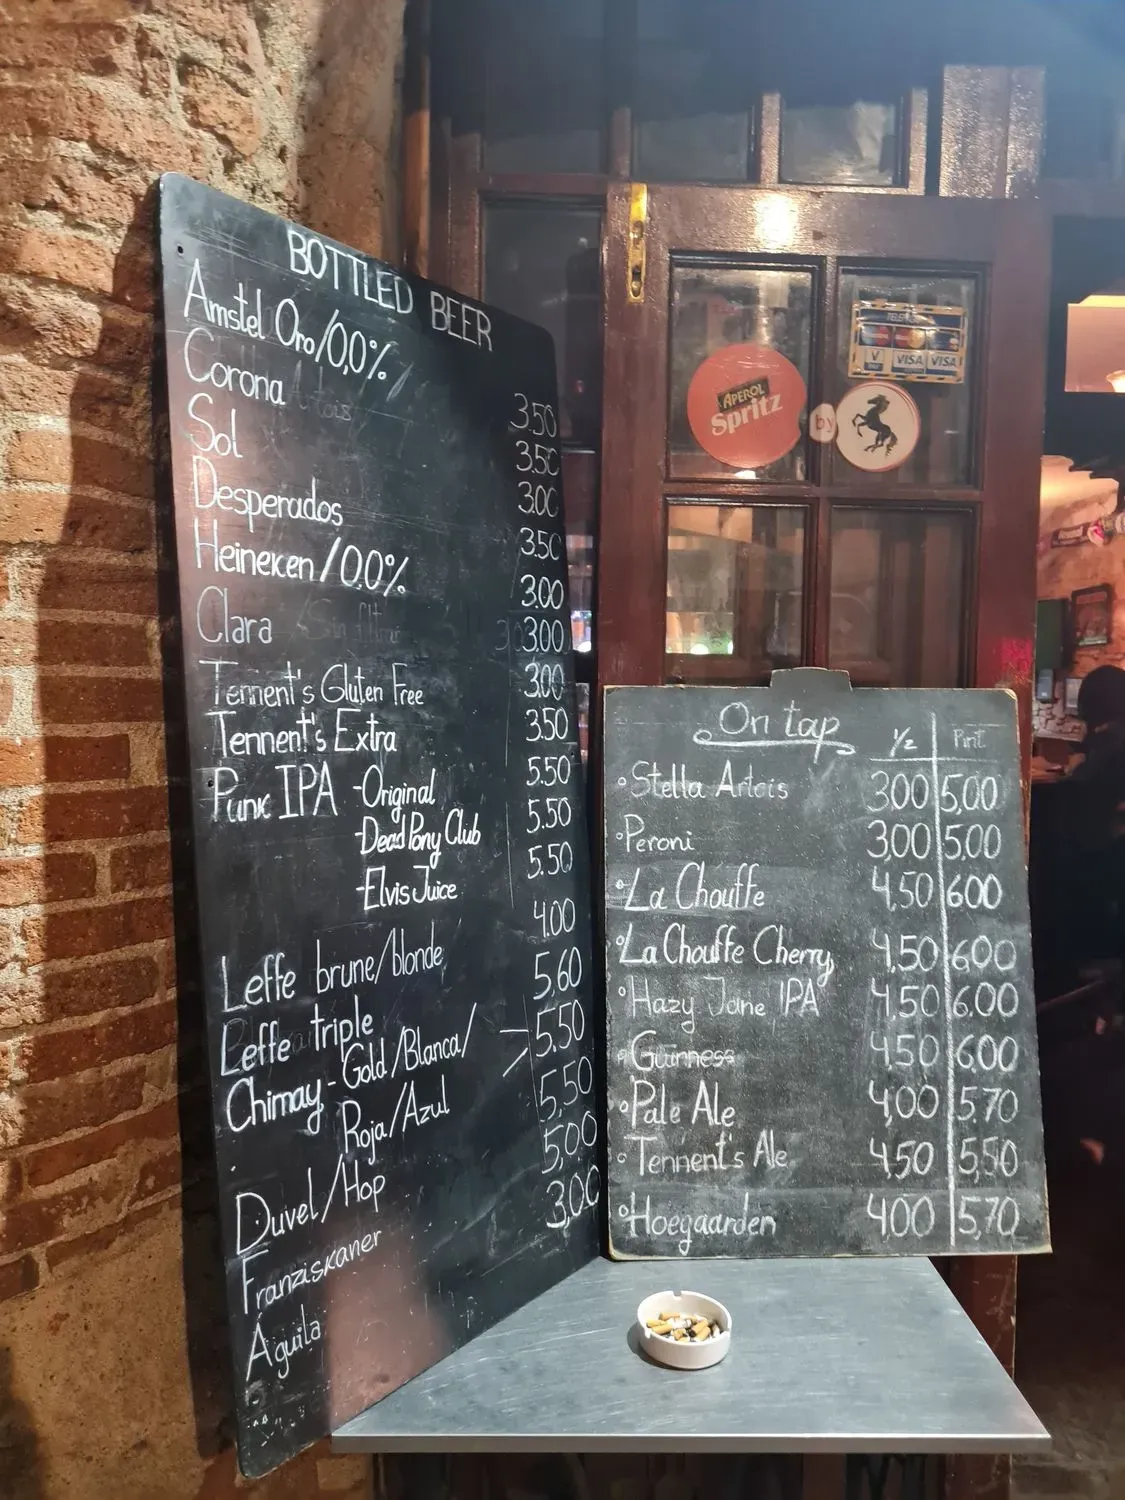 BOTTLED BEER
Amstel Oro/0,0% 3.50
Corona 3.50
Sol 3.00
Desperados 3.50
Heineken/0.0% 3.00
Clara 3.00
Tennent's Gluten Free 3.00
Tennent's Extra 3.50
Punk IPA -Original 5.50
-Dead Pony Club 5.50
-Elvis Juice 5.50
Leffe brune/blonde 4.00
Leffe triple 5.60
Chimay - Gold/Blanca/ 5.50
Roja/Azul
Duvel/Hop 5,50
Franziskaner 5,00
Aguila 3,00
APEROL
Spritz
by
V
VISA
VISA
On tap 1/2 Pint
Stella Artois 3.00 5,00
Peroni 3,00 5.00
La Chouffe 4,50 6.00
La Chouffe Cherry 4,50 6.00
Hazy Jane IPA 4,50 6.00
Guinness 4,50 6.00
Pale Ale 4,00 5.70
Tennent's Ale 4.50 5,50
Hoegaarden 4.00 5,70